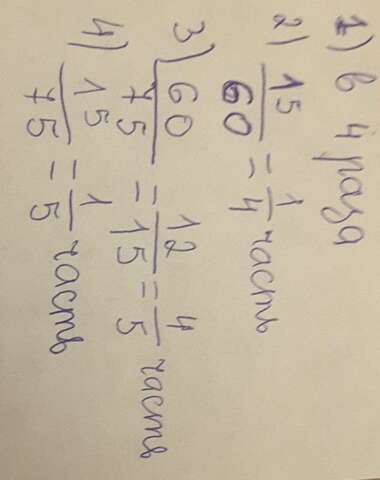 1) в 4 раза
2) 15/60 = 1/4 часть
3) 60/75 = 12/15 = 4/5 часть
4) 15/75 = 1/5 часть